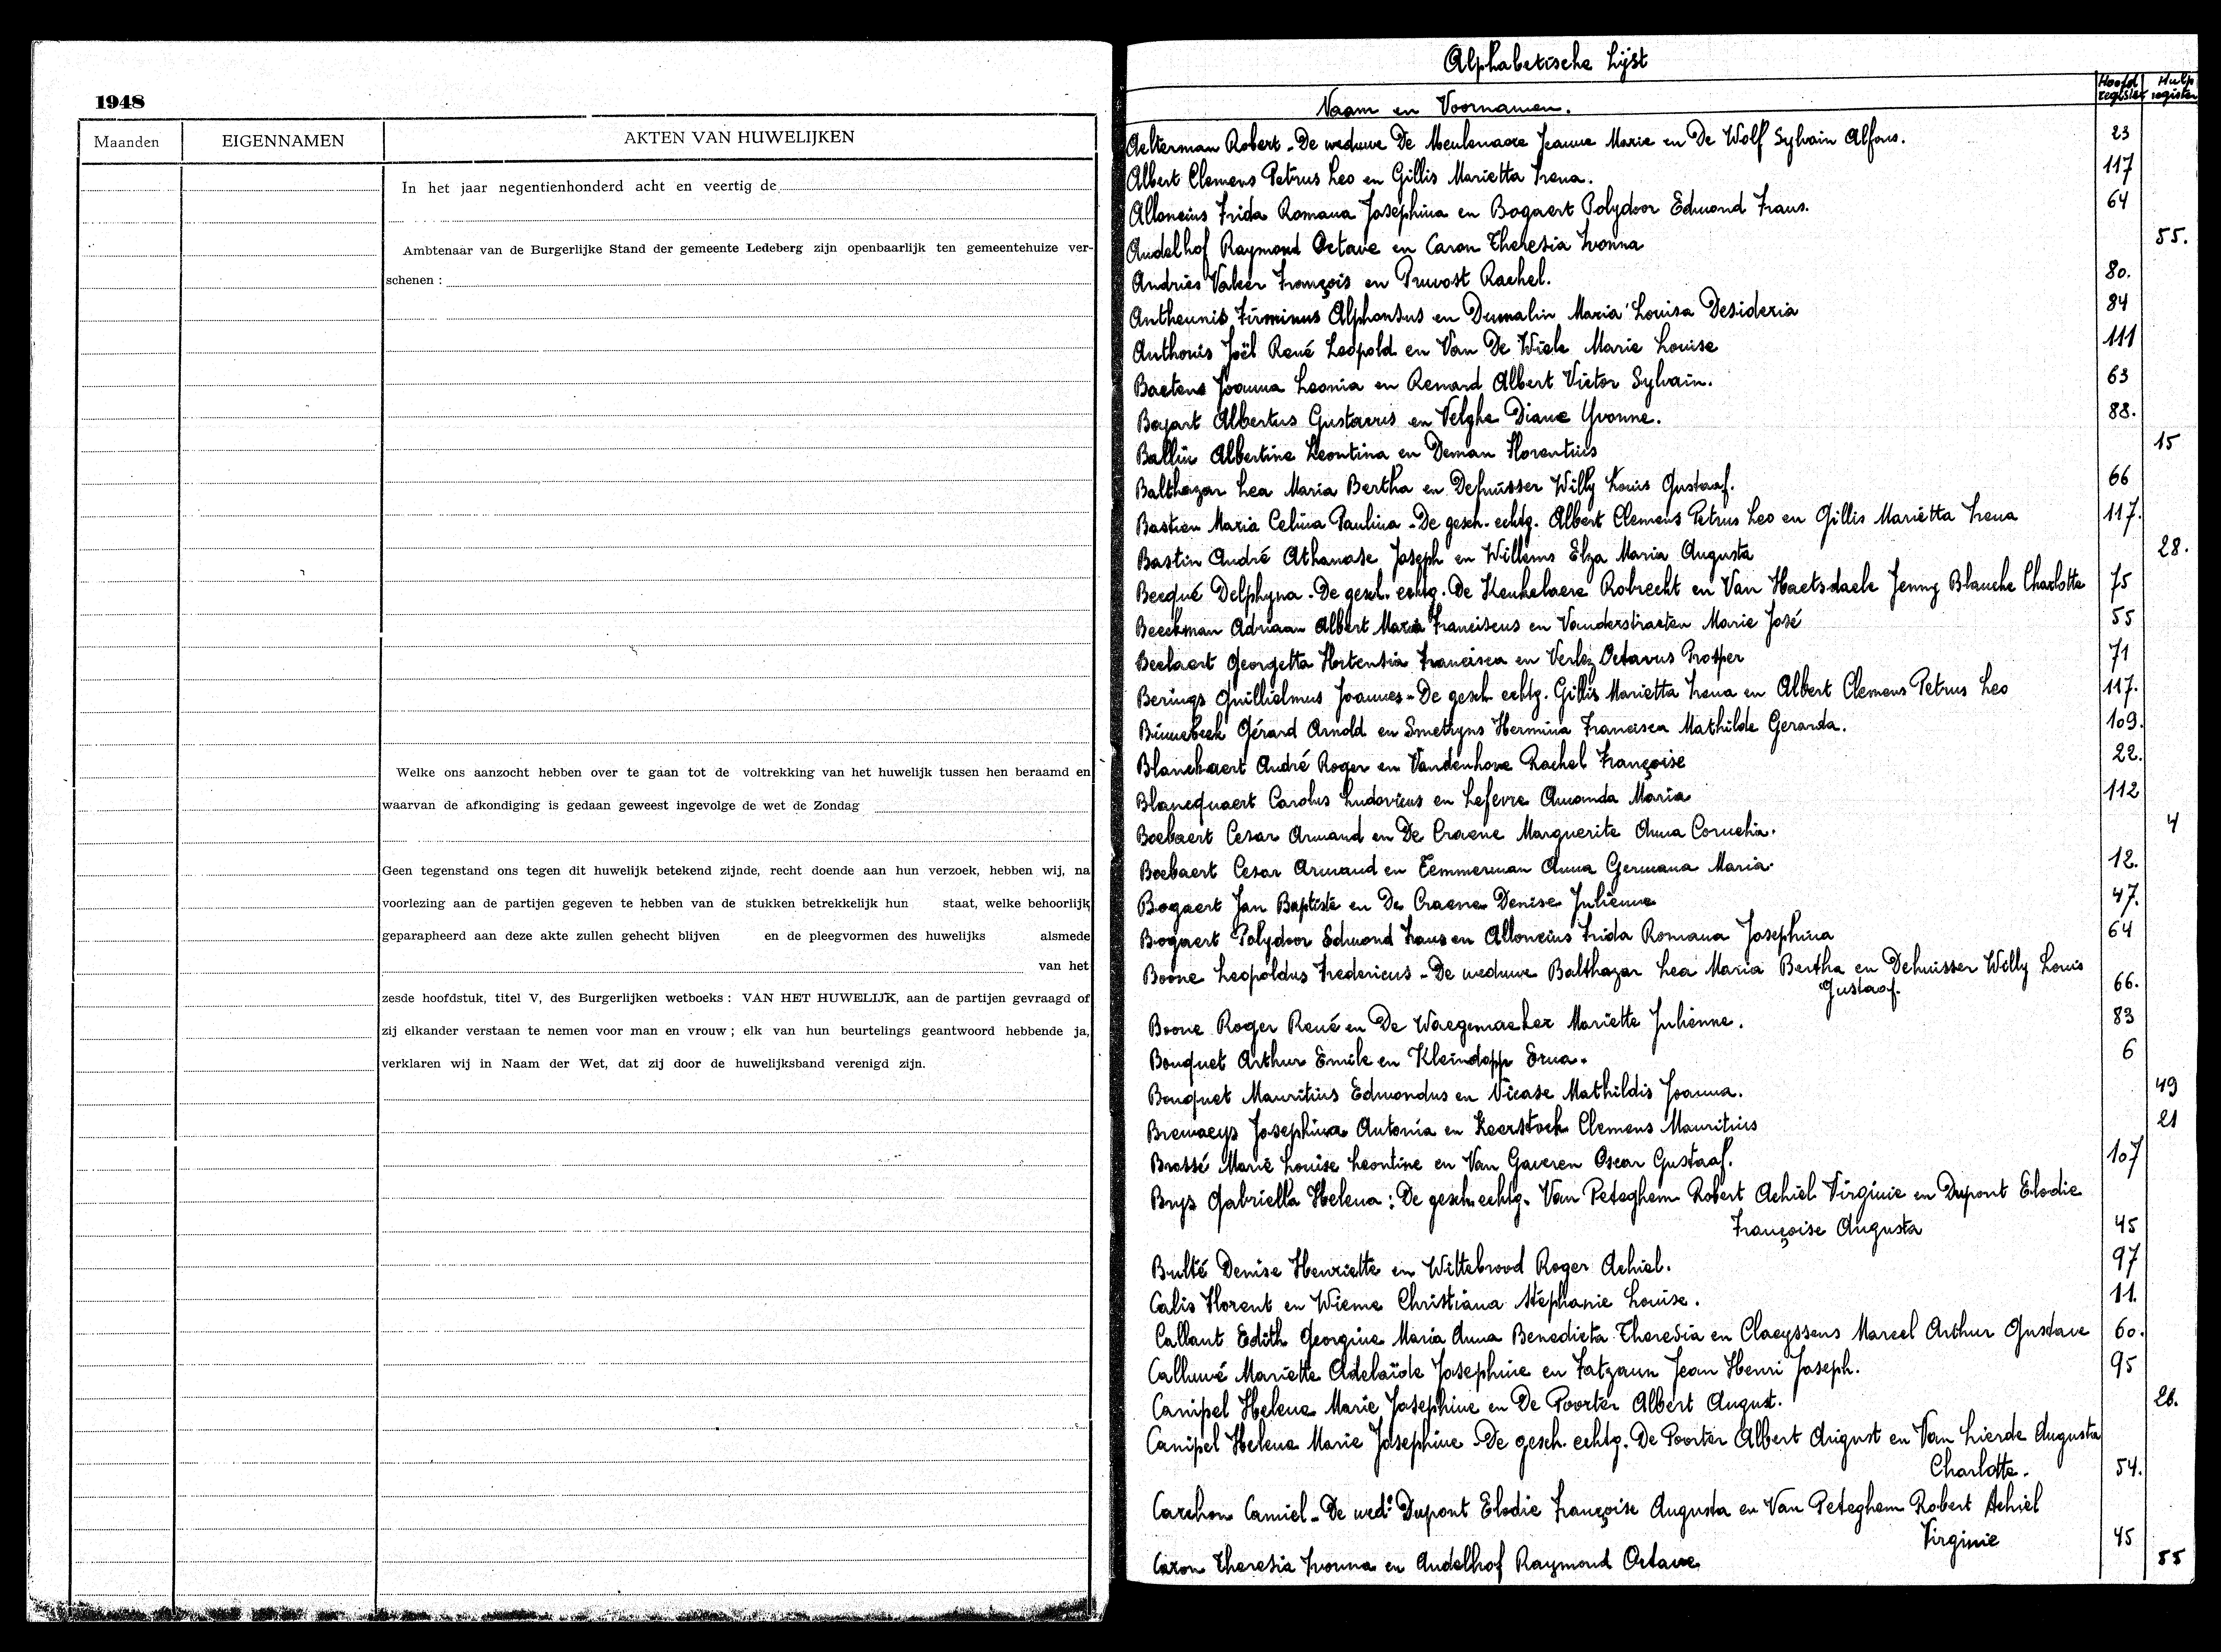 1948
Maanden EIGENNAMEN AKTEN VAN HUWELIJKEN
In het jaar negentienhonderd acht en veertig de
Ambtenaar van de Burgerlijke Stand der gemeente Ledeberg zijn openbaarlijk ten gemeentehuize ver-
schenen :
Welke ons aanzocht hebben over te gaan tot de voltrekking van het huwelijk tussen hen beraamd en
waarvan de afkondiging is gedaan geweest ingevolge de wet de Zondag
Geen tegenstand ons tegen dit huwelijk betekend zijnde, recht doende aan hun verzoek, hebben wij, na
voorlezing aan de partijen gegeven te hebben van de stukken betrekkelijk hun staat, welke behoorlijk
geparapheerd aan deze akte zullen gehecht blijven en de pleegvormen des huwelijks alsmede
van het
zesde hoofdstuk, titel V, des Burgerlijken wetboeks : VAN HET HUWELIJK, aan de partijen gevraagd of
zij elkander verstaan te nemen voor man en vrouw ; elk van hun beurtelings geantwoord hebbende ja,
verklaren wij in Naam der Wet, dat zij door de huwelijksband verenigd zijn.
Alphabetische Lijst
Naam en Voornamen. Hoofd register Hulp register
Aelterman Robert - De weduwe De Meulenaere Jeanne Marie en De Wolf Sylvain Alfons. 23
Albert Clemens Petrus Leo en Gillis Marietta Irena. 117
Alloncius Frida Romana Josephina en Bogaert Polydoor Edmond Frans. 64
Andelhof Raymond Octave en Caron Theresia Ivonna 55.
Andries Valeer François en Pruvost Rachel. 80.
Antheunis Firminus Alphonsus en Dumalin Maria Louisa Desideria 84
Anthonis Joël René Leopold en Van De Wiele Marie Louise 111
Baetens Joanna Leonia en Renard Albert Victor Sylvain. 63
Bajart Albertus Gustavus en Velghe Diane Yvonne. 88.
Balliu Albertine Leontina en Deman Florentius 15
Balthazar Lea Maria Bertha en Dehuisser Willy Louis Gustaaf. 66
Bastien Maria Celina Paulina - De gesch. echtg. Albert Clemens Petrus Leo en Gillis Mariëtta Irena 117.
Bastin André Athanase Joseph en Willems Elza Maria Augusta 28.
Becqué Delphyna - De gesch. echtg. De Keukelaere Robrecht en Van Haetsdaele Jenny Blanche Charlotte 75
Beeckman Adriaan Albert Maria Franciscus en Vanderstraeten Marie José 55
Beelaert Georgetta Hortensia Francisca en Verlez Octavus Prosper 71
Berings Guillielmus Joannes - De gesch. echtg. Gillis Marietta Irena en Albert Clemens Petrus Leo 117.
Binnebeek Gérard Arnold en Smetryns Hermina Francisca Mathilde Gerarda. 109.
Blanckaert André Roger en Vandenhove Rachel Françoise 22.
Blancquaert Carolus Ludovicus en Lefevre Amanda Maria 112
Boelaert Cesar Armand en De Craene Marguerite Anna Cornelia. 4
Boelaert Cesar Armand en Temmerman Anna Germana Maria. 12.
Bogaert Jan Baptiste en De Craene Denise Julienne 47.
Bogaert Polydoor Edmond Frans en Alloncius Frida Romana Josephina 64
Boone Leopoldus Fredericus - De weduwe Balthazar Lea Maria Bertha en Dehuisser Willy Louis
Gustaaf. 66.
Boone Roger René en De Waegemaeker Mariette Julienne. 83
Bouquet Arthur Emile en Kleindopp Erna. 6
Bouquet Mauritius Edmondus en Nicase Mathildis Joanna. 49
Bremaeys Josephina Antonia en Keerstock Clemens Mauritius 21
Brossé Marie Louise Leontine en Van Gaveren Oscar Gustaaf. 107
Brys Gabriella Helena : De gesch. echtg. Van Peteghem Robert Achiel Virginie en Dupont Elodie
Françoise Augusta 45
Bulté Denise Henriette en Wittebrood Roger Achiel. 97
Calis Florent en Wieme Christiana Stephanie Louise. 11.
Callant Edith Georgine Maria Anna Benedicta Theresia en Claeyssens Marcel Arthur Gustave 60.
Calluwé Mariette Adelaïde Josephine en Fatzaun Jean Henri Joseph. 95
Canipel Helena Marie Josephine en De Poorter Albert August. 26.
Canipel Helena Marie Josephine - De gesch. echtg. De Poorter Albert August en Van Lierde Augusta
Charlotte. 54.
Carchon Camiel - De wede Dupont Elodie Françoise Augusta en Van Peteghem Robert Achiel
Virginie 45
Caron Theresia Ivonna en Andelhof Raymond Octave 55